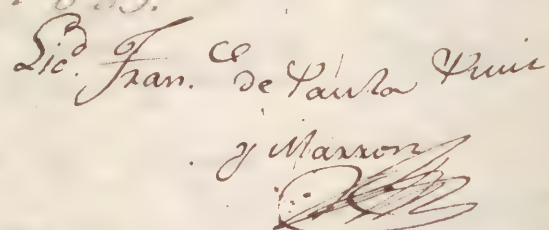 Lic.d Fran.co de Paula Ruiz
y Marron